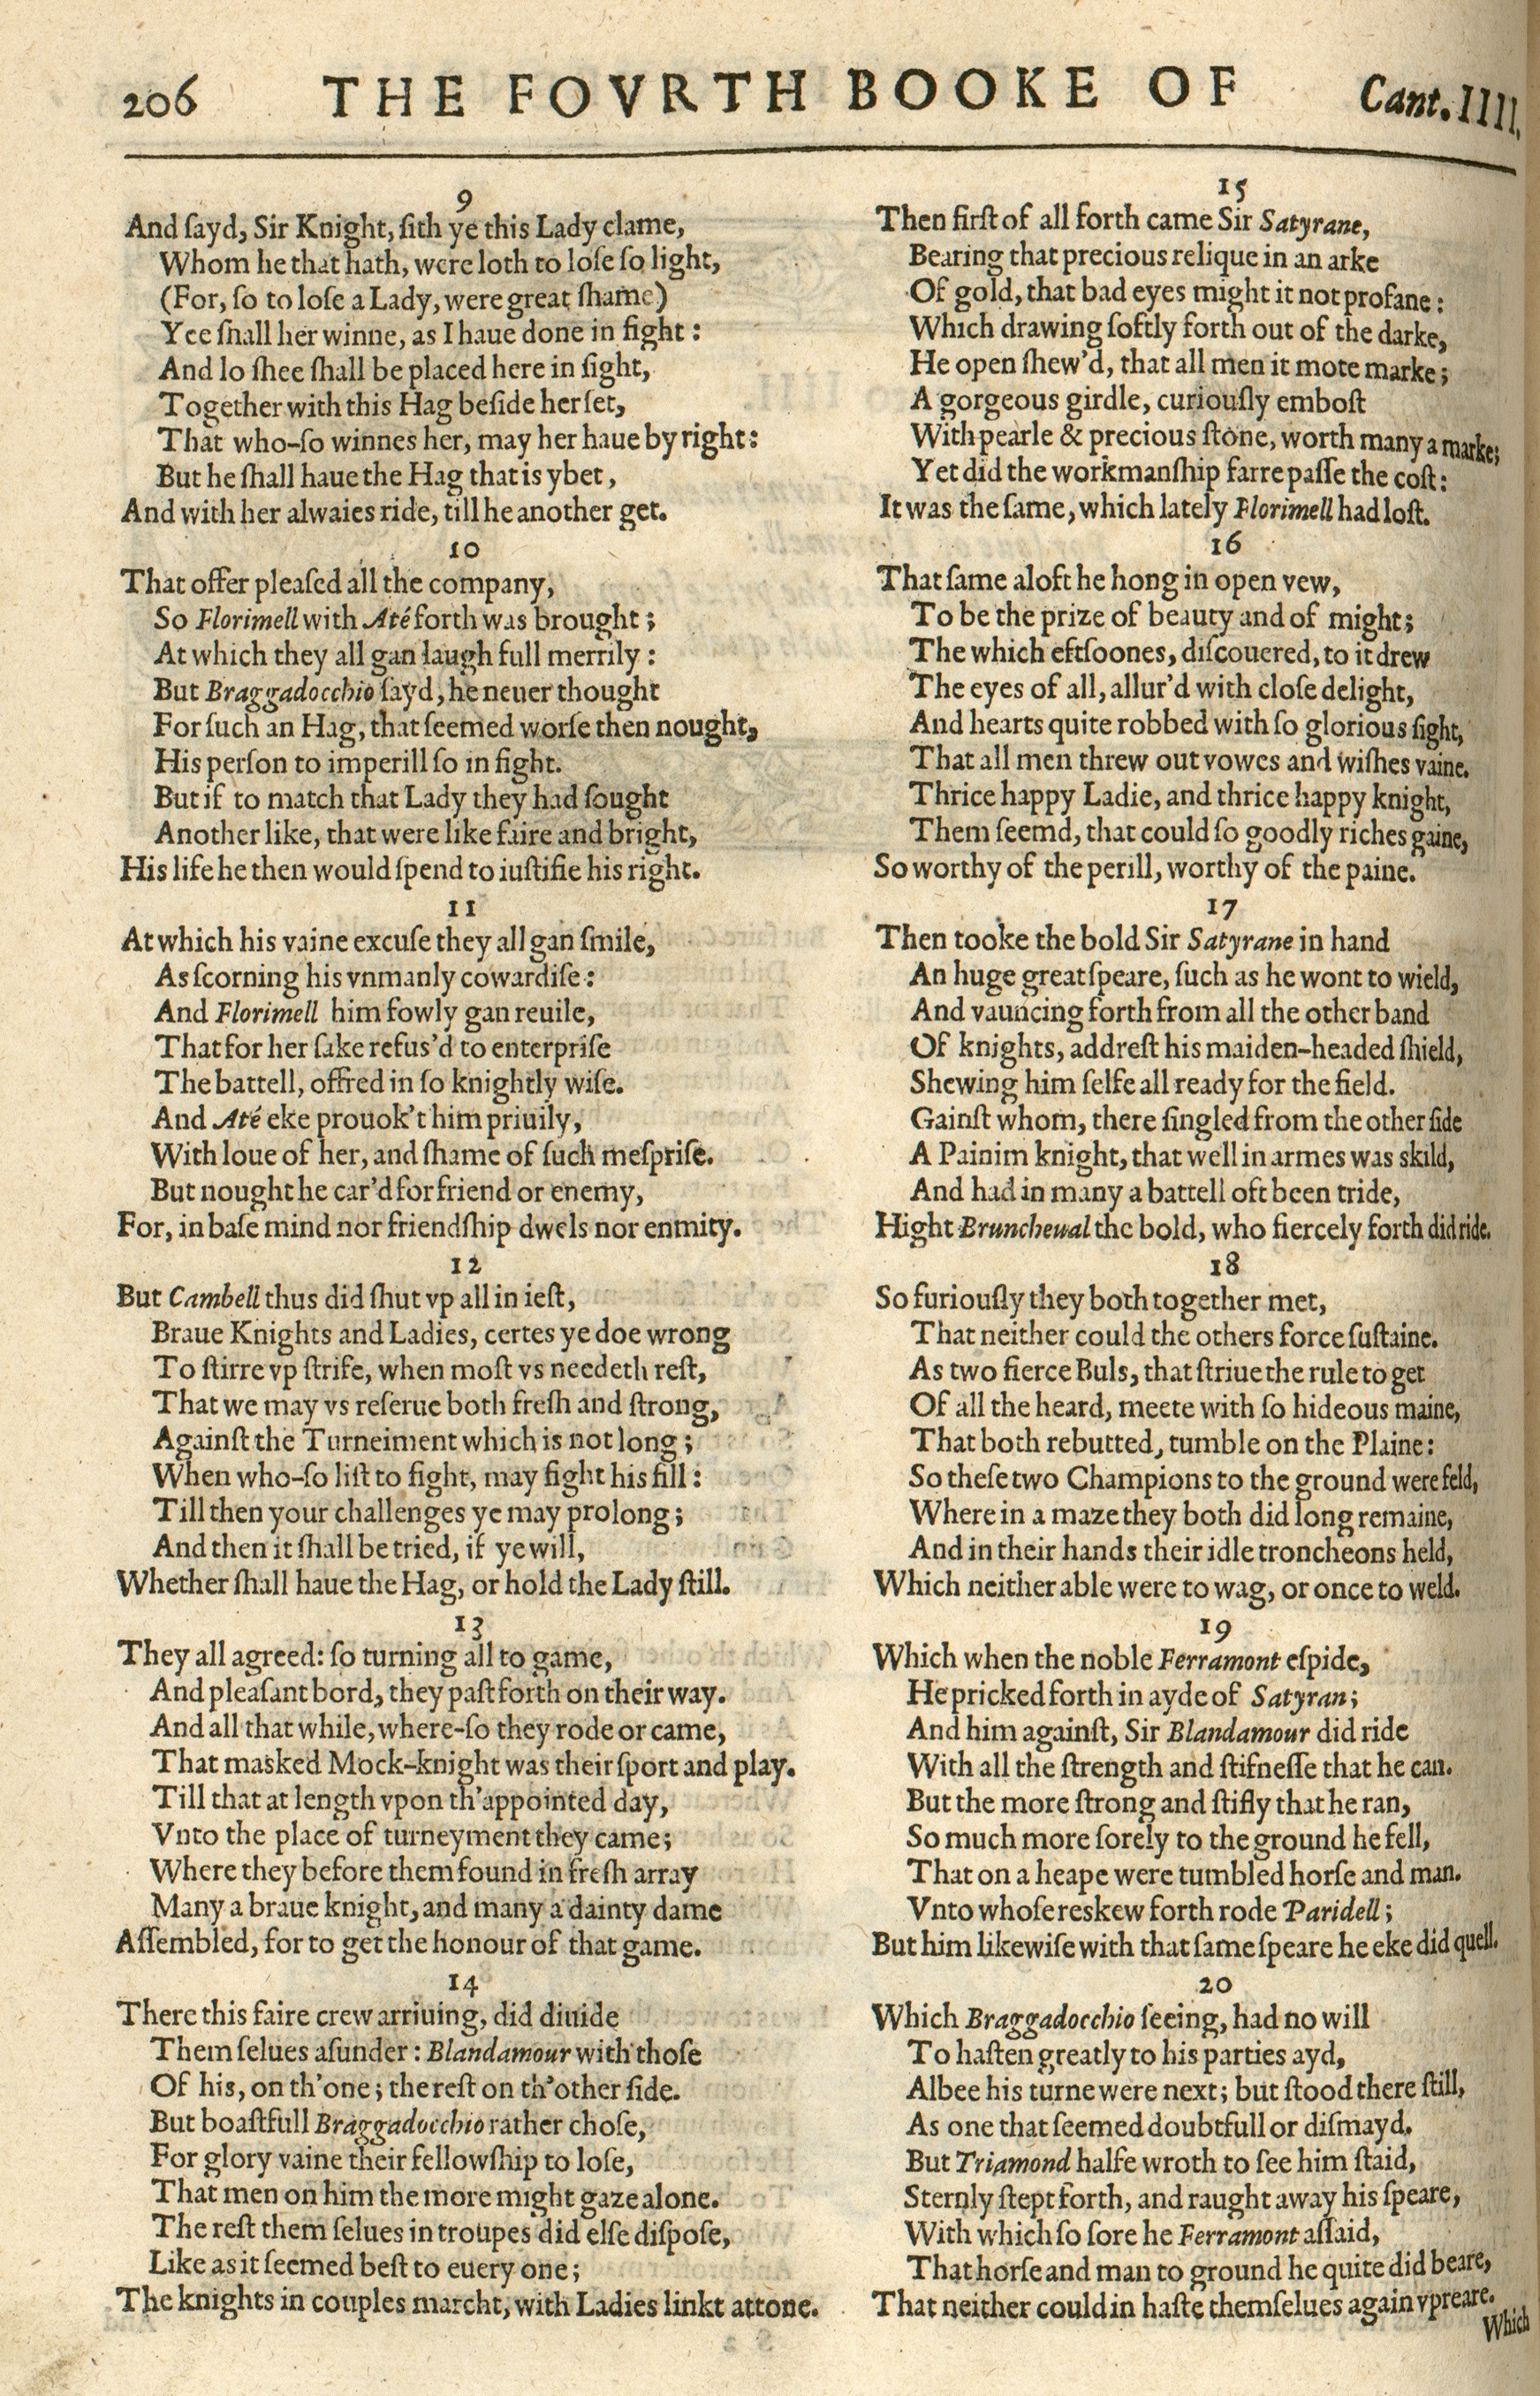 206 THE FOVRTH BOOKE OF Cant. IIII.
9
And ſayd, Sir Knight, ſith ye this Lady clame,
Whom he that hath, were loth to loſe ſo light,
(For, ſo to loſe a Lady, were great ſhame)
Yee ſhall her winne, as I haue done in fight:
And lo ſhee ſhall be placed here in ſight,
Together with this Hag beſide her ſet,
That who-ſo winnes her, may her haue by right:
But he ſhall haue the Hag that is ybet,
And with her alwaies ride, till he another get.
10
That offer pleaſed all the company,
So Florimell with Até forth was brought;
At which they all gan laugh full merrily:
But Braggadocchio ſayd, he neuer thought
For ſuch an Hag, that ſeemed worſe then nought,
His perſon to imperill ſo in fight.
But if to match that Lady they had ſought
Another like, that were like faire and bright,
His life he then would ſpend to iuſtifie his right.
11
At which his vaine excuſe they all gan ſmile,
As ſcorning his vnmanly cowardiſe:
And Florimell him fowly gan reuile,
That for her ſake refus'd to enterpriſe
The battell, offred in ſo knightly wiſe.
And Até eke prouok't him priuily,
With loue of her, and ſhame of ſuch meſpriſe.
But nought he car'd for friend or enemy,
For, in baſe mind nor friendſhip dwels nor enmity.
12
But Cambell thus did ſhut vp all in ieſt,
Braue Knights and Ladies, certes ye doe wrong
To ſtirre vp ſtrife, when moſt vs needeth reſt,
That we may vs reſerue both freſh and ſtrong,
Againſt the Turneiment which is not long;
When who-ſo liſt to fight, may fight his fill:
Till then your challenges ye may prolong;
And then it ſhall be tried, if ye will,
Whether ſhall haue the Hag, or hold the Lady ſtill.
13
They all agreed: ſo turning all to game,
And pleaſant bord, they paſt forth on their way.
And all that while, where-ſo they rode or came,
That masked Mock-knight was their ſport and play.
Till that at length vpon th'appointed day,
Vnto the place of turneyment they came;
Where they before them found in freſh array
Many a braue knight, and many a dainty dame
Aſſembled, for to get the honour of that game.
14
There this faire crew arriuing, did diuide
Themſelues aſunder: Blandamour with thoſe
Of his, on th'one; the reſt on th'other ſide.
But boaſtfull Braggadocchio rather choſe,
For glory vaine their fellowſhip to loſe,
That men on him the more might gaze alone.
The reſt them ſelues in troupes did elſe diſpoſe,
Like as it ſeemed beſt to euery one;
The knights in couples marcht, with Ladies linkt attone.
15
Then firſt of all forth came Sir Satyrane,
Bearing that precious relique in an arke
Of gold, that bad eyes might it not profane:
Which drawing ſoftly forth out of the darke,
He open ſhew'd, that all men it mote marke;
A gorgeous girdle, curiouſly emboſt
With pearle & precious ſtone, worth many a marke;
Yet did the workmanſhip farre paſſe the coſt:
It was the ſame, which lately Florimell had loſt.
16
That ſame aloft he hong in open vew,
To be the prize of beauty and of might;
The which eftſoones, diſcouered, to it drew
The eyes of all, allur'd with cloſe delight,
And hearts quite robbed with ſo glorious ſight,
That all men threw out vowes and wiſhes vaine.
Thrice happy Ladie, and thrice happy knight,
Them ſeemd, that could ſo goodly riches gaine,
So worthy of the perill, worthy of the paine.
17
Then tooke the bold Sir Satyrane in hand
An huge great ſpeare, ſuch as he wont to wield,
And vauncing forth from all the other band
Of knights, addreſt his maiden-headed ſhield,
Shewing him ſelfe all ready for the field.
Gainſt whom, there ſingled from the other ſide
A Painim knight, that well in armes was skild,
And had in many a battell oft been tride,
Hight Bruncheual the bold, who fiercely forth did ride.
18
So furiouſly they both together met,
That neither could the others force ſuſtaine.
As two fierce Buls, that ſtriue the rule to get
Of all the heard, meete with ſo hideous maine,
That both rebutted, tumble on the Plaine:
So theſe two Champions to the ground were feld,
Where in a maze they both did long remaine,
And in their hands their idle troncheons held,
Which neither able were to wag, or once to weld.
19
Which when the noble Ferramont eſpide,
He pricked forth in ayde of Satyran;
And him againſt, Sir Blandamour did ride
With all the ſtrength and ſtifneſſe that he can.
But the more ſtrong and ſtifly that he ran,
So much more ſorely to the ground he fell,
That on a heape were tumbled horſe and man.
Vnto whoſe reskew forth rode Paridell;
But him likewiſe with that ſame ſpeare he eke did quell.
20
Which Braggadocchio ſeeing, had no will
To haſten greatly to his parties ayd,
Albee his turne were next; but ſtood there ſtill,
As one that ſeemed doubtfull or diſmayd.
But Triamond halfe wroth to ſee him ſtaid,
Sternly ſtept forth, and raught away his ſpeare,
With which ſo ſore he Ferramont aſſaid,
That horſe and man to ground he quite did beare,
That neither could in haſte themſelues again vpreare.
Which